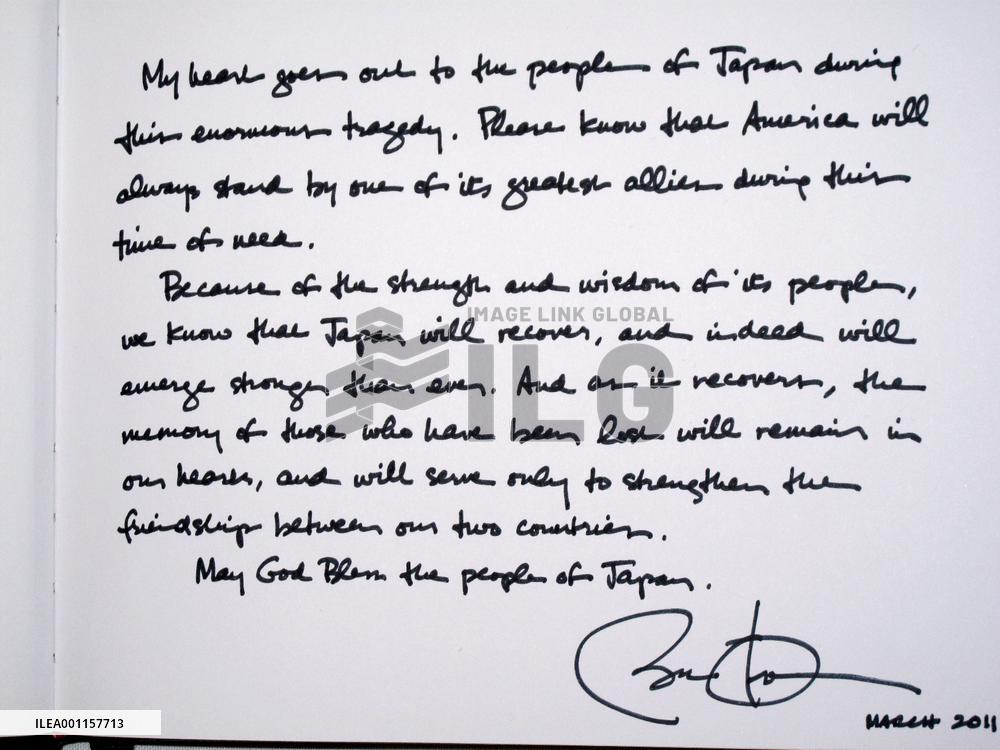 My heart goes out to the people of Japan during
this enormous tragedy. Please know that America will
always stand by one of its greatest allies during this
time of need.
Because of the strength and wisdom of its people,
we know that Japan will recover, and indeed will
emerge stronger than ever. And as it recovers, the
memory of those who have been lost will remain in
our hearts, and will serve only to strengthen the
friendship between our two countries.
May God Bless the people of Japan.
MARCH 2011
IMAGE LINK GLOBAL
ILG
ILEA001157713